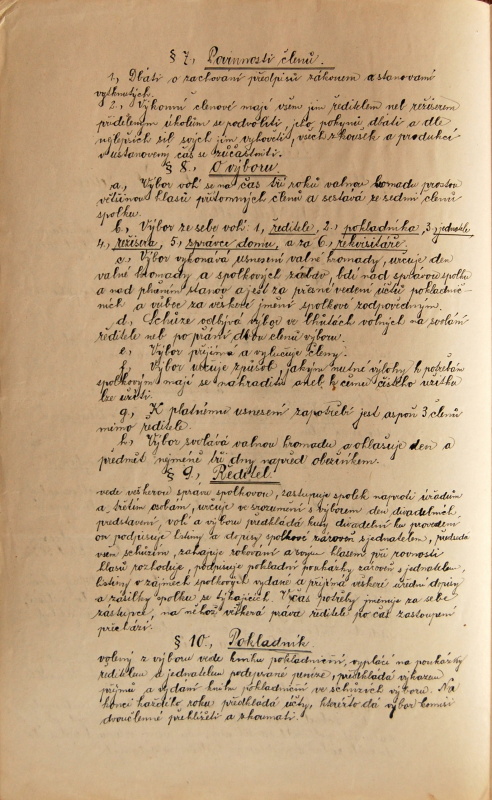 § 7., Povinnosti členů.
1, Dbáti o zachování předpisů zákonem a stanovami
vytknutých.
2., Výkonní členové mají všem jim ředitelem neb režisérem
přiděleným úkolům se podvoliti, jeho pokynů dbáti a dle
nejlepších sil svých jim vyhověti, všech zkoušek a produkcí
v ustanovený čas se zúčastniti.
§ 8., O výboru.
a, Výbor volí se na čas tří roků valnou hromadou prostou
většinou hlasů přítomných členů a sestává ze sedmi členů
spolku.
b, Výbor ze sebe volí: 1, ředitele, 2., pokladníka, 3, jednatele,
4, režiséra, 5, správce domu, a za 6, rekvisitáře.
c, Výbor vykonává usnesení valné hromady, určuje den
valné hromady a spolkových zábav, bdí nad správou spolku
a nad plněním stanov a jest za pravé vedení účtů pokladnič-
ních a vůbec za veškeré jmění spolkové zodpovědným.
d, Schůze odbývá výbor ve lhůtách volných na svolání
ředitele neb po přání dvou členů výboru.
e, Výbor přijímá a vylučuje členy.
f, Výbor určuje způsob, jakým nutné výlohy k potřebám
spolkovým mají se nahraditi aneb k čemu čistého užitku
lze užíti.
g, K platnému usnesení zapotřebí jest aspoň 3 členů
mimo ředitele.
h, Výbor svolává valnou hromadu a ohlašuje den a
předmět nejméně tři dny napřed oběžníkem.
§ 9., Ředitel.
vede veškerou správu spolkovou, zastupuje spolek naproti úřadům
a třetím osobám, určuje ve srozumění s výborem den divadelních
představení, volí a výboru předkládá kusy divadelní ku provedení
on podpisuje listiny a dopisy spolkové zároveň s jednatelem, předsedá
všem schůzím, zahajuje rokování a svým hlasem při rovnosti
hlasů rozhoduje, podpisuje pokladní poukázky zároveň s jednatelem,
listiny o zájmech spolkových vydané a přijímá veškeré úřední dopisy
a zásilky spolku se týkajících. V čas potřeby jmenuje za sebe
zástupce, na něhož veškerá práva ředitele po čas zastoupení
přechází.
§ 10., Pokladník.
volený z výboru vede knihu pokladniční, vyplácí na poukázky
ředitelem a jednatelem podepsané peníze, předkládá výkazem
příjmů a vydání knihu pokladniční ve schůzích výboru. Na
konci každého roku předkládá účty, kteréžto dá výbor komisí
dvoučlenné přehlížeti a zkoumati.